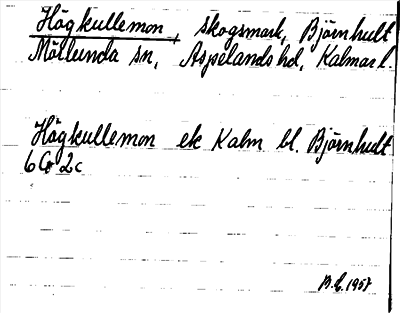 Högkullemon, skogsmark, Björnhult
Mörlunda sn, Aspelands hd, Kalmar l.
Högkullemon ek Kalm bl. Björnhult
6 G 2c
1957